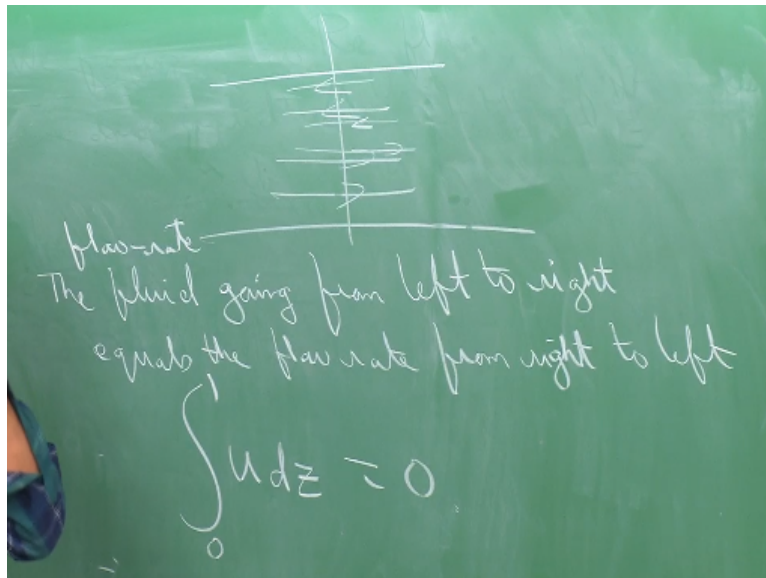 flow-rate
The fluid going from left to right
equals the flow rate from right to left
∫₀¹ u dz = 0